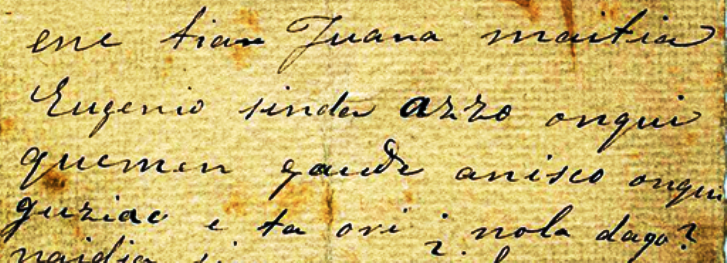 ene tian Juana maitia
Eugenio sinda azzo ongui
quemen gaude anisco ongui
guziac e ta ori ¿ nola dago?
naidia si